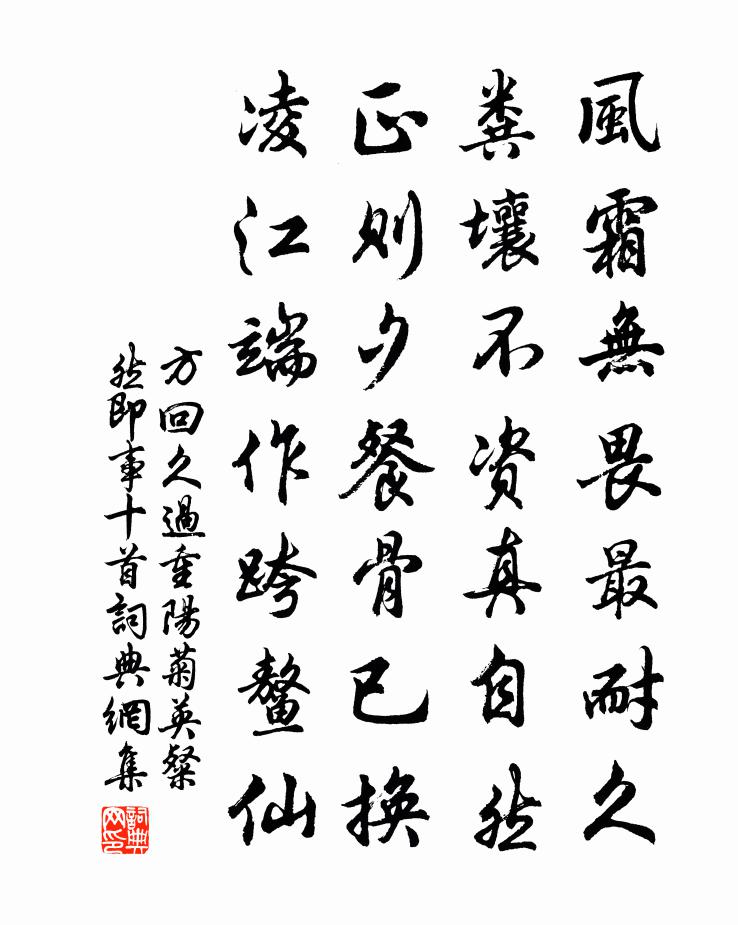 風霜無畏最耐久
糞壤不資真自然
正則夕餐骨已換
凌江端作跨鰲仙
方回久過重陽菊英粲
然即事十首詞典網集
詞典網印